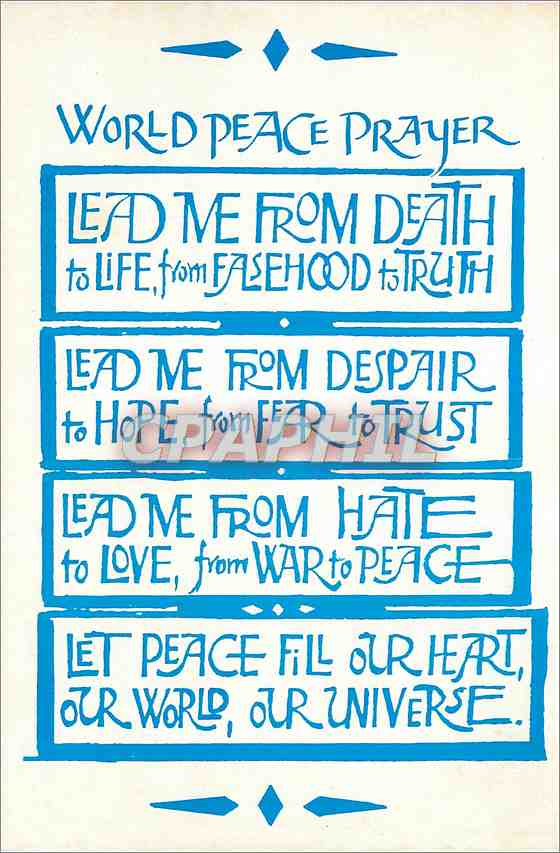 WORLD PEACE PRAYER
LEAD ME FROM DEATH
to LIFE, from FALSEHOOD to TRUTH
LEAD ME FROM DESPAIR
to HOPE from FEAR to TRUST
CPAPHIL
LEAD ME FROM HATE
to LOVE, from WAR to PEACE
LET PEACE FiLL OUR HEART,
OUR WORLD, OUR UNIVERSE.